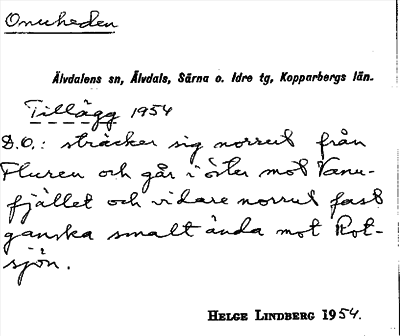 Onuheden
Älvdalens sn, Älvdals, Särna o. Idre tg, Kopparbergs län.
Tillägg 1954
D.O.: sträcker sig norrut från
Fluren och går i öster mot Vanu-
fjället och vidare norrut fast
ganska smalt ända mot Rot-
sjön.
HELGE LINDBERG 1954.